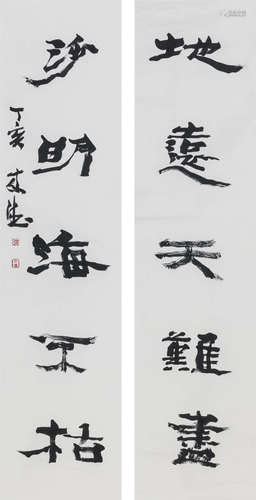 地遠天難盡
沙明海不枯
丁亥